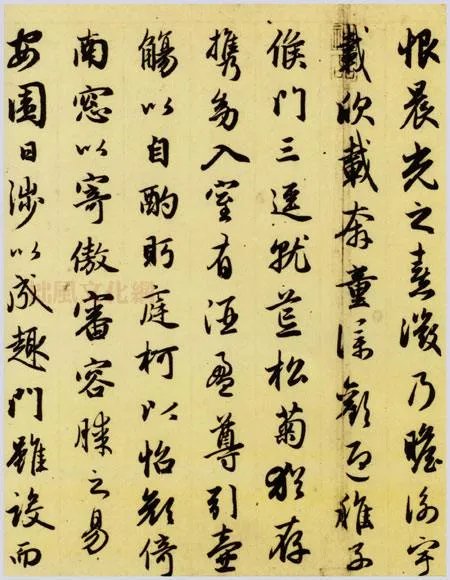 恨晨光之熹微乃瞻衡宇
載欣載奔童僕歡迎稚子
候門三逕就荒松菊猶存
携幼入室有酒盈尊引壺
觴以自酌眄庭柯以怡顏倚
南窓以寄傲審容膝之易
安園日涉以成趣門雖設而
風文化網